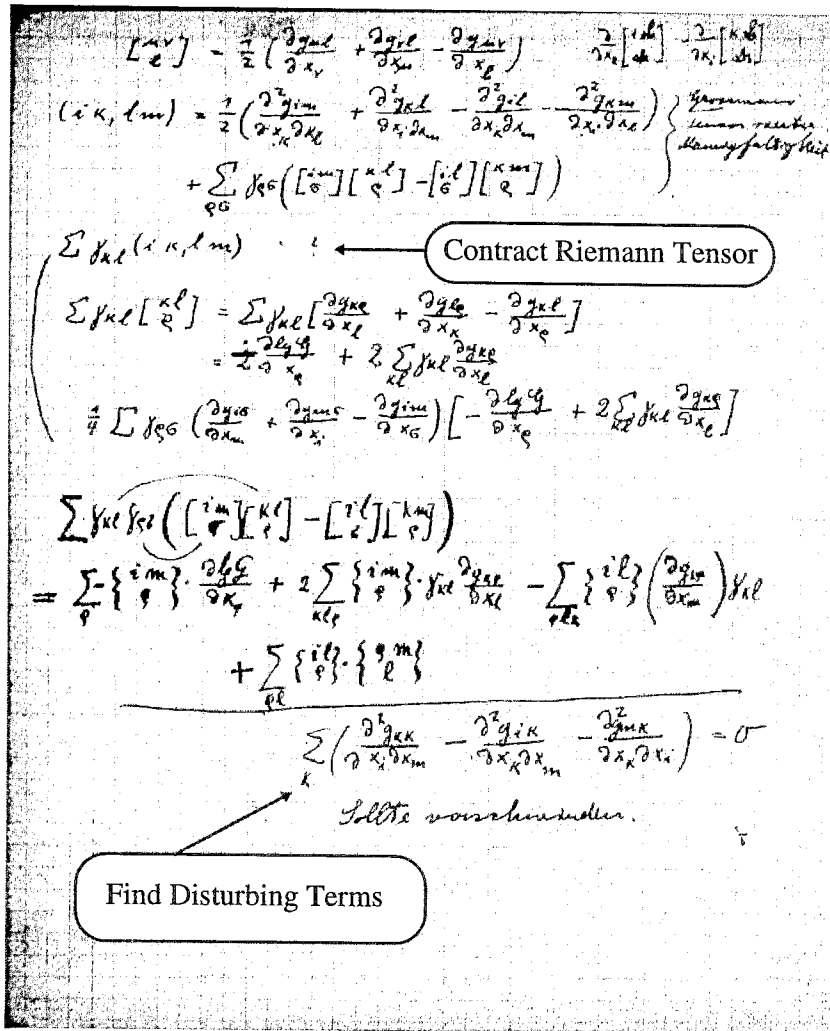 [μν l] = 1/2 (∂g_μl/∂x_ν + ∂g_νl/∂x_μ − ∂g_μν/∂x_l)
(iκ, lm) = 1/2 (∂²g_im/∂x_κ∂x_l + ∂²g_κl/∂x_i∂x_m − ∂²g_il/∂x_κ∂x_m − ∂²g_κm/∂x_i∂x_l) } Grossmann
Mannigfaltigkeit
+ Σ_ρσ γ_ρσ ([im σ][κl ρ] − [il σ][κm ρ])
Σ γ_κl (iκ, lm) ?
Contract Riemann Tensor
Σ γ_κl [κl ρ] = Σ γ_κl [∂g_κρ/∂x_l + ∂g_lρ/∂x_κ − ∂g_κl/∂x_ρ]
∂lgG/∂x_ρ + 2 Σ_κl γ_κl ∂g_κρ/∂x_l
1/4 Σ γ_ρσ (∂g_iσ/∂x_m + ∂g_mσ/∂x_i − ∂g_im/∂x_σ) [−∂lgG/∂x_ρ + 2 Σ_κl γ_κl ∂g_κρ/∂x_l]
Σ γ_κl ([im][κl ρ] − [il][κm ρ])
= Σ_ρ −{im ρ} · ∂lgG/∂x_ρ + 2 Σ_κlρ {im ρ} · γ_κl ∂g_κρ/∂x_l − Σ_ρlκ {il ρ} (∂g/∂x_m) γ_κl
+ Σ_ρl {il ρ} · {ρm l}
Σ_κ (∂²g_κκ/∂x_i∂x_m − ∂²g_iκ/∂x_κ∂x_m − ∂²g_mκ/∂x_κ∂x_i) = 0
Sollte verschwinden.
Find Disturbing Terms